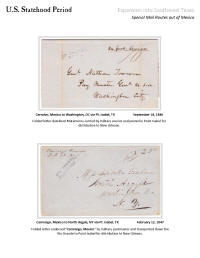 U.S. Statehood Period
Expansion into Southwest Texas
Special Mail Routes out of Mexico
Genl Nathan Towson
Pay Master Genl U.S.A.
Washington City.
Cerralvo, Mexico to Washington, DC via Pt. Isabel, TX
September 18, 1846
Folded letter datelined
carried by military courier and posted to Point Isabel for
distribution to New Orleans.
Camargo, Mexico to North Argyle, NY via Pt. Isabel, TX
February 12, 1847
Folded letter endorsed "Camargo, Mexico" by military postmaster and transported down the
Rio Grande to Point Isabel for distribution to New Orleans.